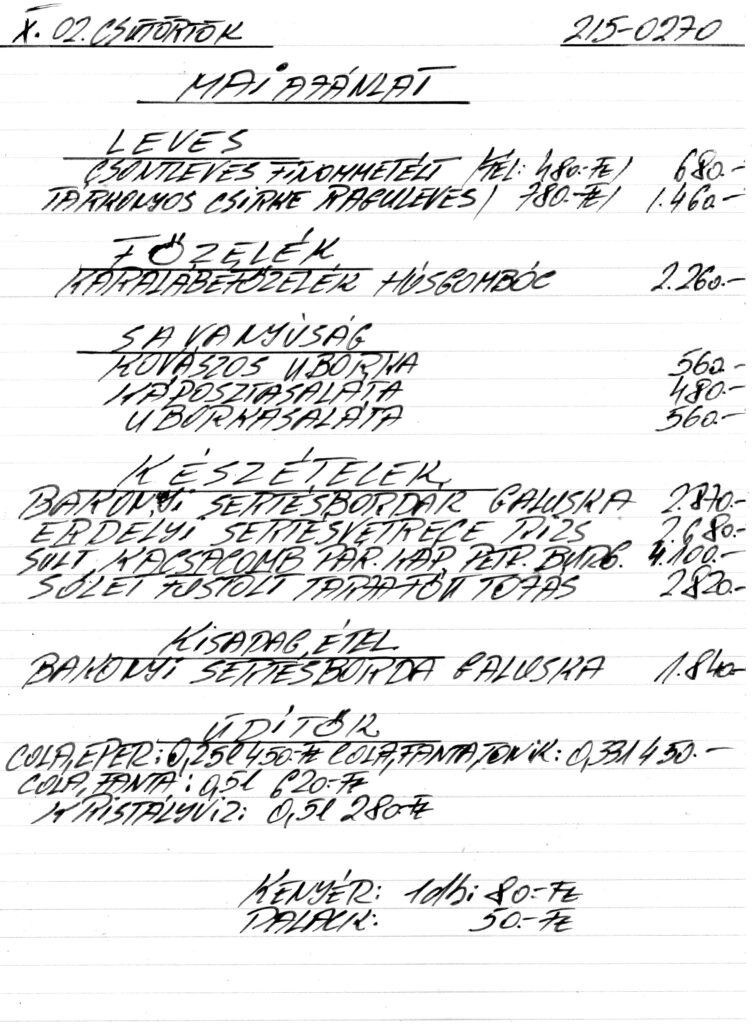 X. 02. CSÜTÖRTÖK 215-0270
MAI AJÁNLAT
LEVES
CSONTLEVES FINOMMETÉLT (FÉL: 480.-Ft) 680.-
TÁRKONYOS CSIRKE RAGULEVES ( 780.-Ft) 1.460.-
FŐZELÉK
KARALÁBÉFŐZELÉK HÚSGOMBÓC 2.260.-
SAVANYÚSÁG
KOVÁSZOS UBORKA 560.-
KÁPOSZTASALÁTA 480.-
UBORKASALÁTA 560.-
KÉSZÉTELEK
BAKONYI SERTÉSBORDA GALUSKA 2.870.-
ERDÉLYI SERTÉSVETRECE RIZS 2.680.-
SÜLT KACSACOMB PÁR. KÁP, PETR. BURG. 4.100.-
SÓLET FÜSTÖLT TARJA FŐTT TOJÁS 2.820.-
KISADAG ÉTEL
BAKONYI SERTÉSBORDA GALUSKA 1.840.-
ÜDÍTŐK
COLA, EPER: 0,25l 450.-Ft COLA, FANTA, TONIK: 0,33l 450.-
COLA, FANTA: 0,5l 620.-Ft
KRISTÁLYVÍZ: 0,5l 280.-Ft
KENYÉR: 1db: 80.-Ft
PALACK: 50.-Ft